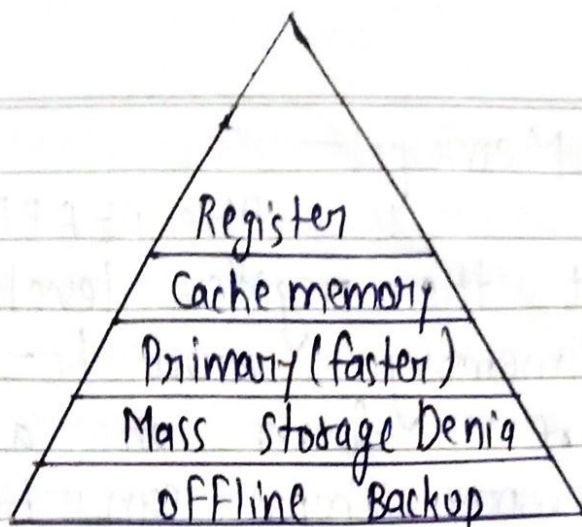 Register
Cache memory
Primary (faster)
Mass Storage Denia
OFFline Backup